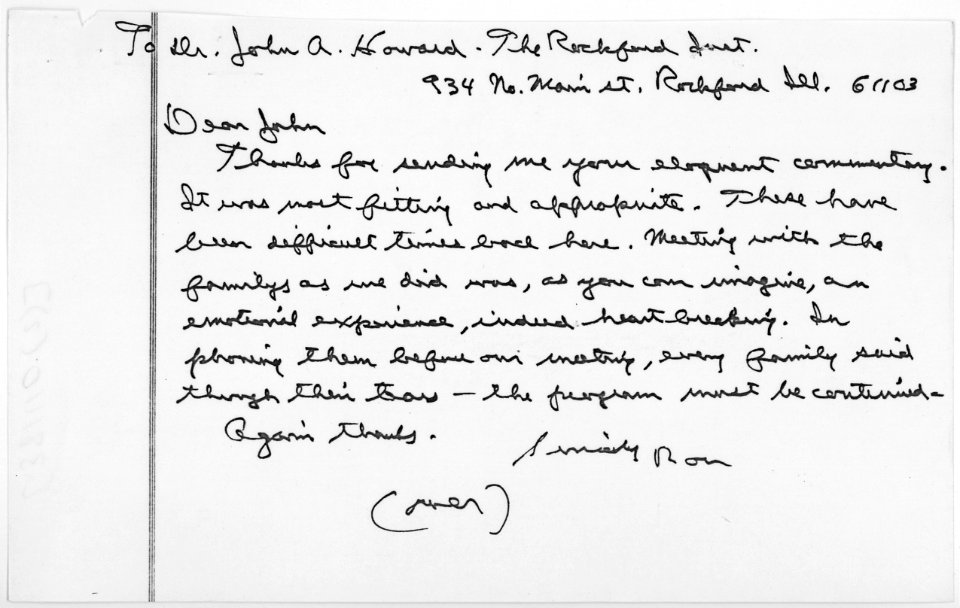 To Dr. John A. Howard - The Rockford Inst.
934 No. Main st. Rockford Ill. 61103
Dear John
Thanks for sending me your eloquent commentary.
It was most fitting and appropriate. These have
been difficult times back here. Meeting with the
familys as we did was, as you can imagine, an
emotional experience, indeed heart breaking. In
phoning them before our meeting, every family said
through their tears — the program must be continued -
Again thanks.
Sincerely Ron
(over)